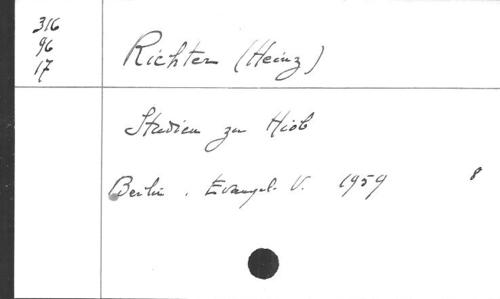 316
96
17
Richter (Heinz)
Studien zu Hiob
Berlin. Evangel. V. 1959 8